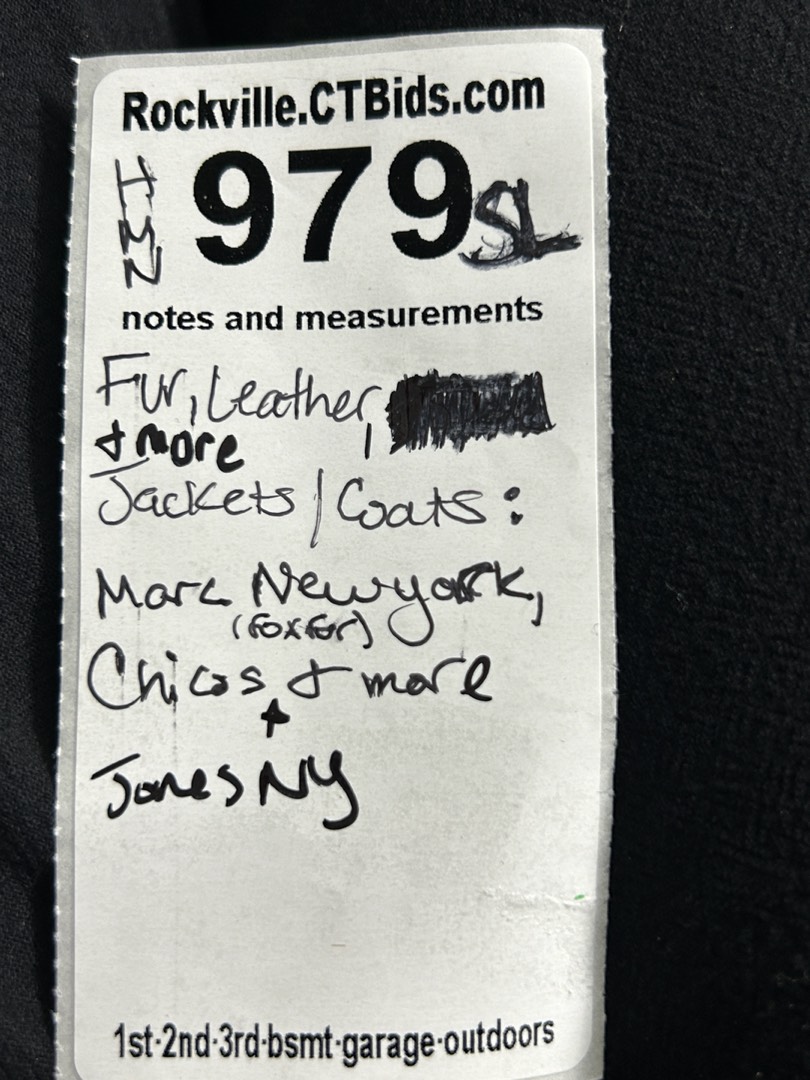 Rockville.CTBids.com
979 SL
notes and measurements
Fur, Leather,
+ more
Jackets / Coats:
Marc Newyork,
(Fox fur)
Chicos, + more
+
Jones NY
1st-2nd-3rd-bsmt-garage-outdoors